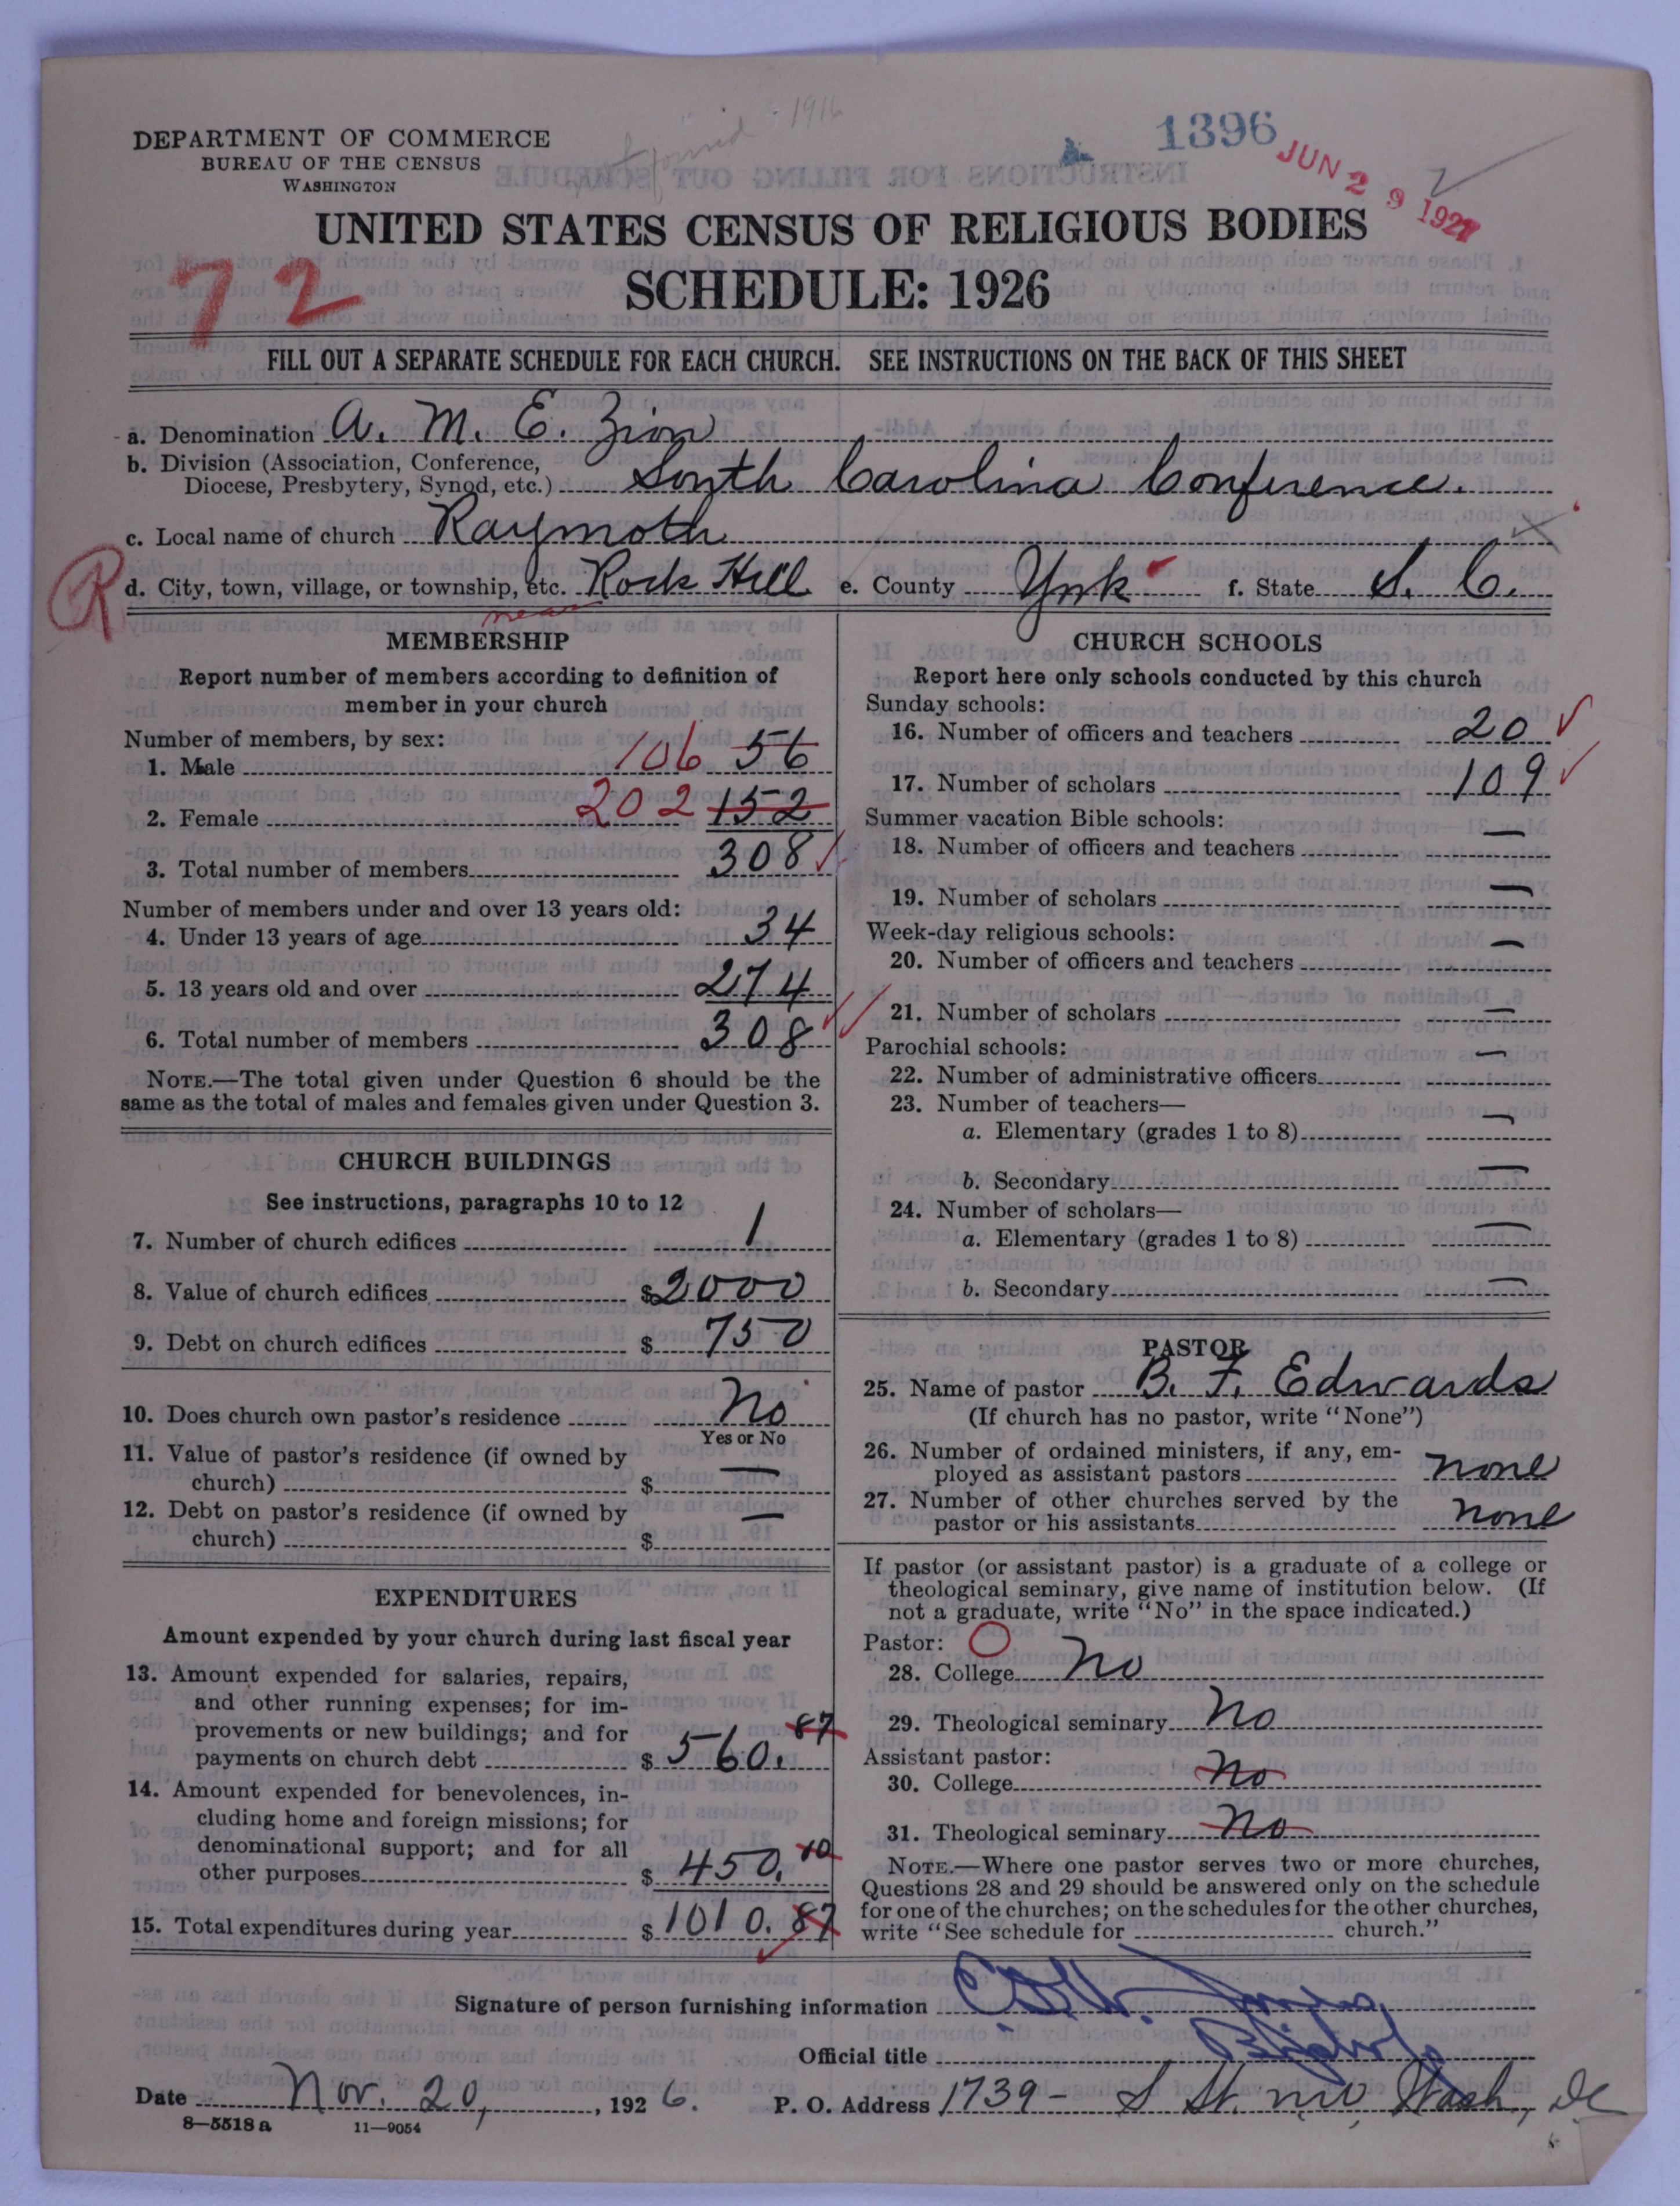 1916
1396
JUN 29 1927
DEPARTMENT OF COMMERCE
BUREAU OF THE CENSUS
WASHINGTON
UNITED STATES CENSUS OF RELIGIOUS BODIES
72
SCHEDULE: 1926
FILL OUT A SEPARATE SCHEDULE FOR EACH CHURCH. SEE INSTRUCTIONS ON THE BACK OF THIS SHEET
a. Denomination A. M. E. Zion
b. Division (Association, Conference,
Diocese, Presbytery, Synod, etc.) South Carolina Conference.
c. Local name of church Raymoth
R
d. City, town, village, or township, etc. Rock Hill e. County York f. State S. C.
near
MEMBERSHIP
Report number of members according to definition of
member in your church
Number of members, by sex:
1. Male 106 56
2. Female 202 152
3. Total number of members 308
Number of members under and over 13 years old:
4. Under 13 years of age 34
5. 13 years old and over 274
6. Total number of members 308
NOTE.—The total given under Question 6 should be the
same as the total of males and females given under Question 3.
CHURCH BUILDINGS
See instructions, paragraphs 10 to 12
7. Number of church edifices 1
8. Value of church edifices $2000
9. Debt on church edifices $ 750
10. Does church own pastor's residence No
Yes or No
11. Value of pastor's residence (if owned by
church) $ —
12. Debt on pastor's residence (if owned by
church) $ —
EXPENDITURES
Amount expended by your church during last fiscal year
13. Amount expended for salaries, repairs,
and other running expenses; for im-
provements or new buildings; and for
payments on church debt $ 560. 87
14. Amount expended for benevolences, in-
cluding home and foreign missions; for
denominational support; and for all
other purposes $ 450.
15. Total expenditures during year $ 1010. 87
CHURCH SCHOOLS
Report here only schools conducted by this church
Sunday schools:
16. Number of officers and teachers 20
17. Number of scholars 109
Summer vacation Bible schools:
18. Number of officers and teachers —
19. Number of scholars —
Week-day religious schools:
20. Number of officers and teachers —
21. Number of scholars —
Parochial schools:
22. Number of administrative officers —
23. Number of teachers—
a. Elementary (grades 1 to 8) —
b. Secondary —
24. Number of scholars—
a. Elementary (grades 1 to 8) —
b. Secondary —
PASTOR
25. Name of pastor B. F. Edwards
(If church has no pastor, write "None")
26. Number of ordained ministers, if any, em-
ployed as assistant pastors none
27. Number of other churches served by the
pastor or his assistants none
If pastor (or assistant pastor) is a graduate of a college or
theological seminary, give name of institution below. (If
not a graduate, write "No" in the space indicated.)
Pastor:
28. College No
29. Theological seminary No
Assistant pastor:
30. College No
31. Theological seminary No
NOTE.—Where one pastor serves two or more churches,
Questions 28 and 29 should be answered only on the schedule
for one of the churches; on the schedules for the other churches,
write "See schedule for church."
Signature of person furnishing information
Official title Bishop
Date Nov. 20, 1926. P. O. Address 1739 - S St. NW, Wash, DC
8—5518 a 11—9054